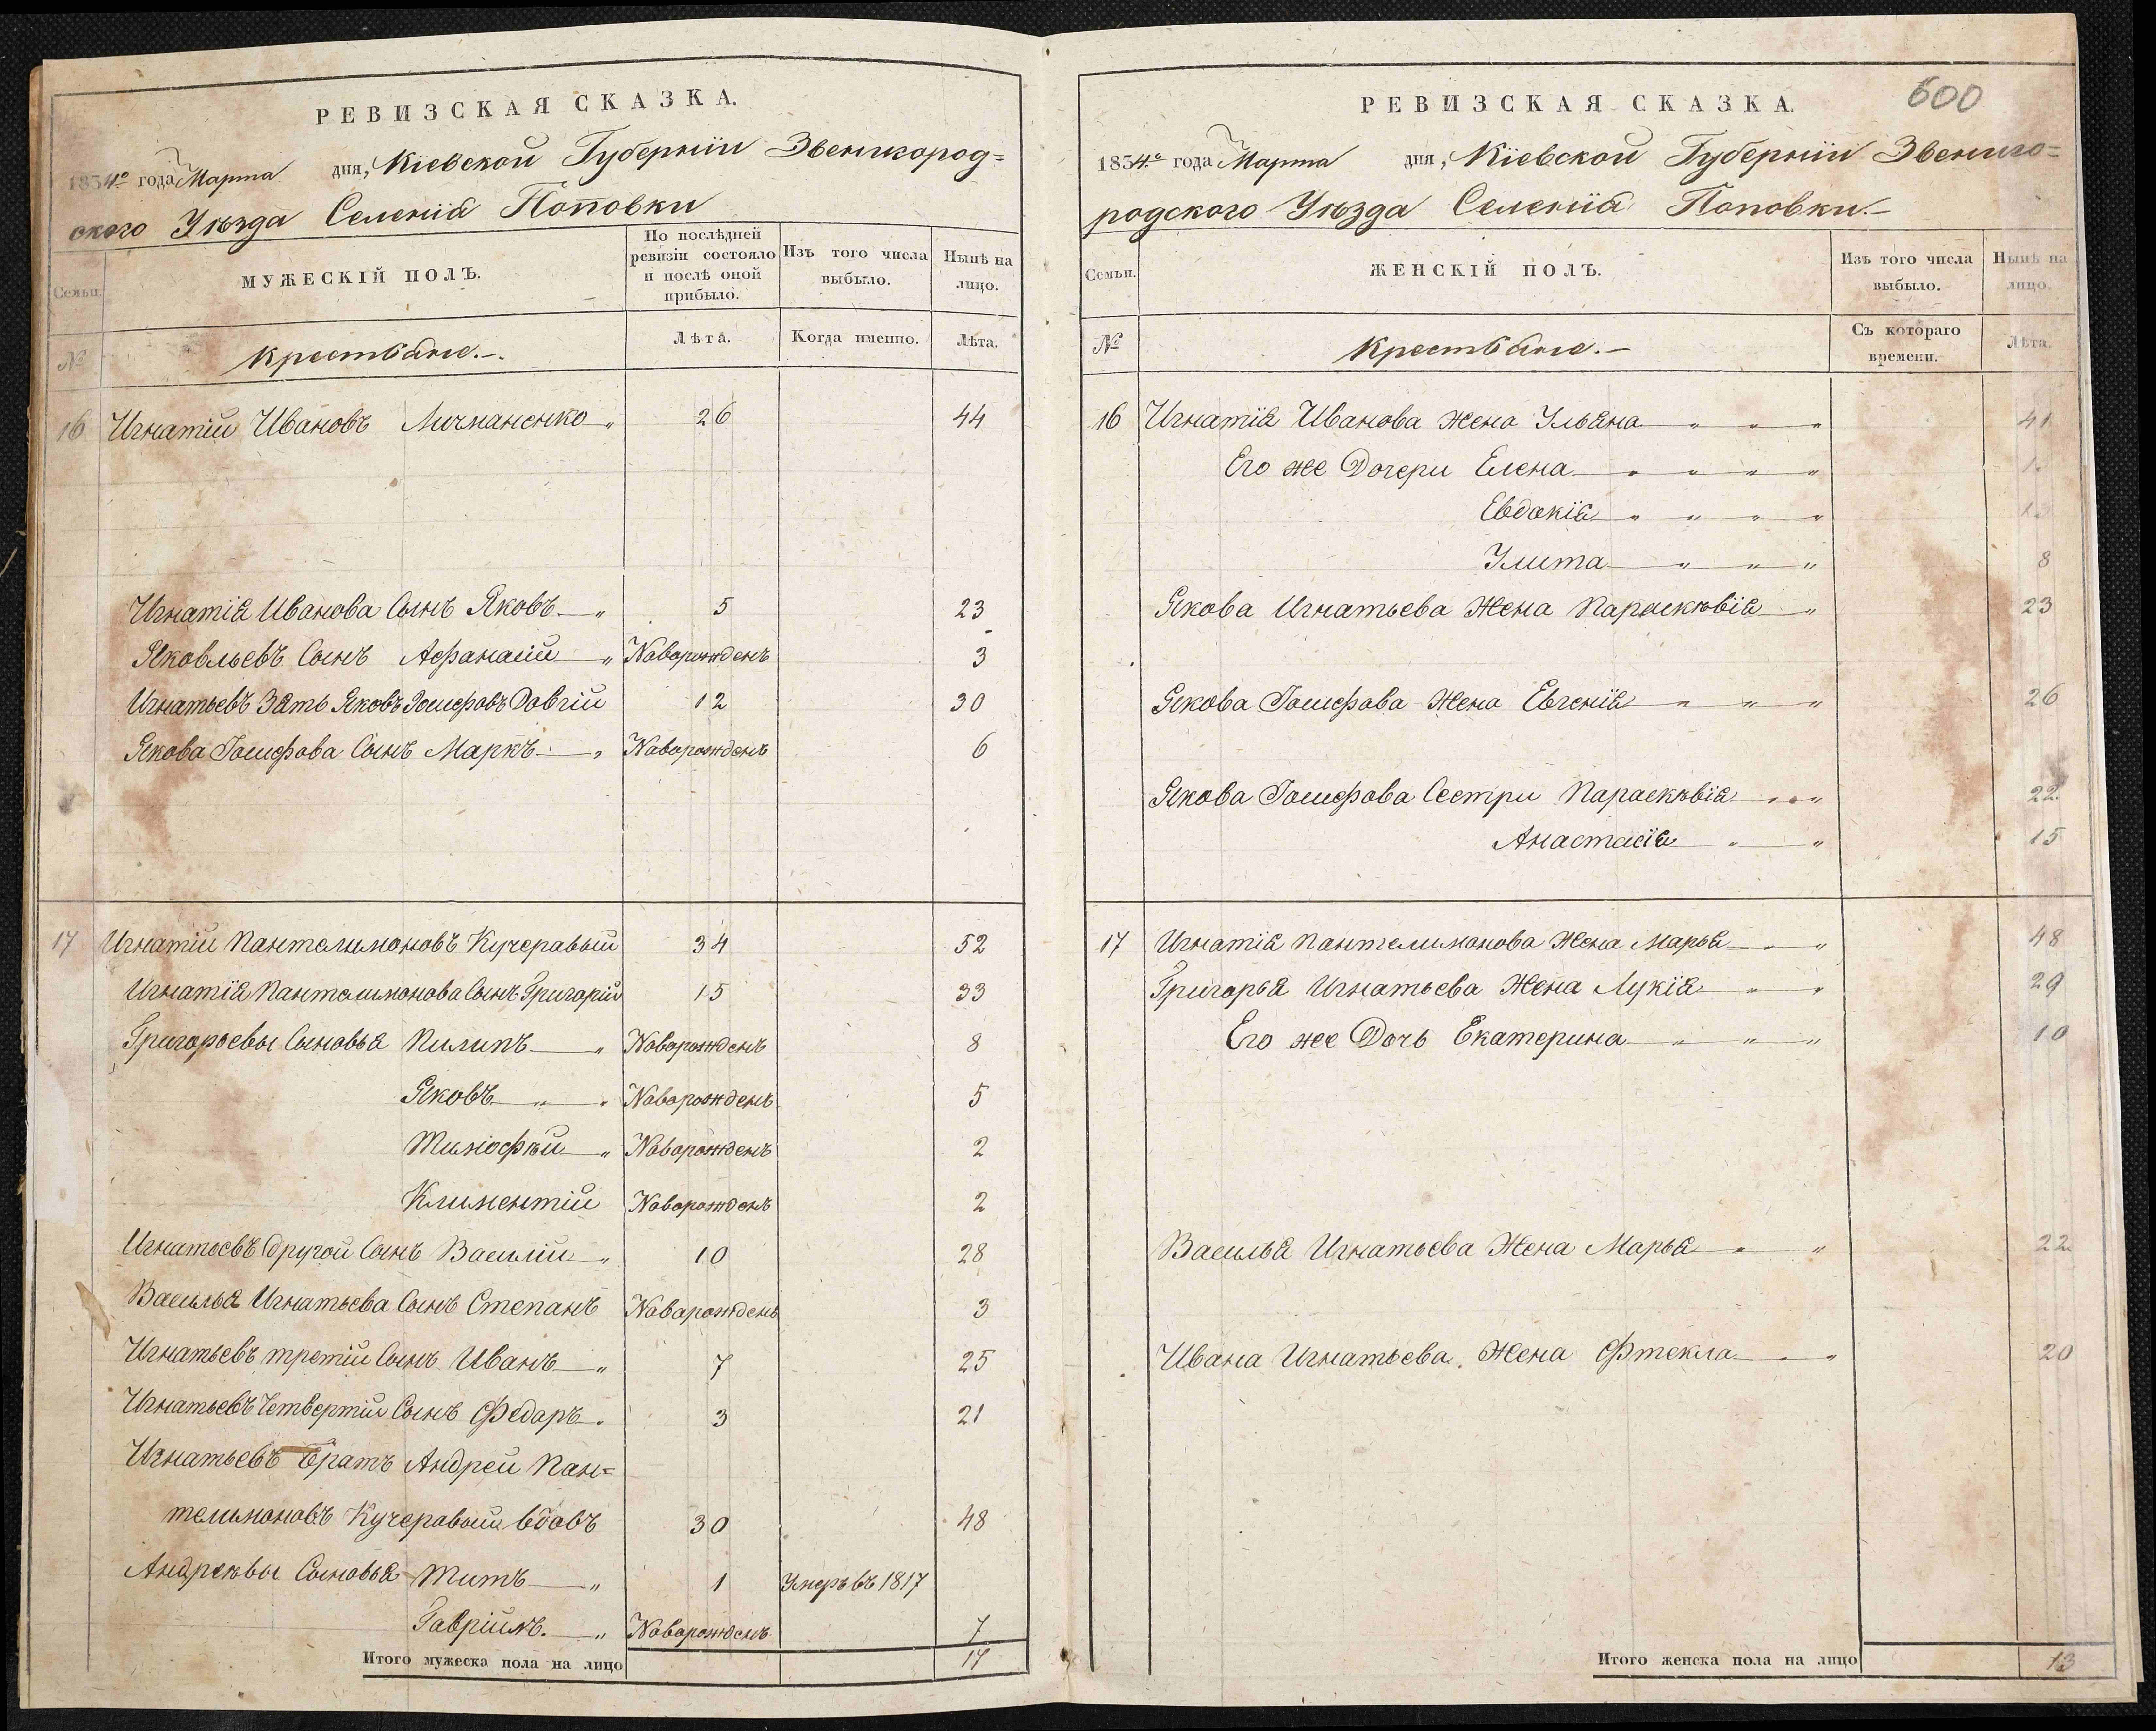 РЕВИЗСКАЯ СКАЗКА.
1834го года Марта дня, Кіевской Губерніи Звенигород=
ского Уѣзда Селенія Поповки
Семьи. МУЖЕСКІЙ ПОЛЪ. По послѣдней ревизіи состояло и послѣ оной прибыло. Изъ того числа выбыло. Нынѣ на лицо.
№ Крестьяне.-. Лѣта. Когда именно. Лѣта.
16 Игнатій Ивановъ Личманенко 26 44
Игнатія Иванова Сынъ Яковъ 5 23
Яковльевъ Сынъ Афанасій Наворожденъ 3
Игнатьевъ Зять Яковъ Іосифовъ Довгій 12 30
Якова Іосифова Сынъ Маркъ Наворожденъ 6
17 Игнатій Пантелимоновъ Кучеравый 34 52
Игнатія Пантелимонова Сынъ Григорій 15 33
Григорьевы Сыновья Пилипъ Наворожденъ 8
Яковъ Наворожденъ 5
Тимофѣй Наворожденъ 2
Климентій Наворожденъ 2
Игнатьевъ другой Сынъ Василій 10 28
Василья Игнатьева Сынъ Степанъ Наворожденъ 3
Игнатьевъ третій Сынъ Иванъ 7 25
Игнатьевъ Четвертій Сынъ Федаръ 3 21
Игнатьевъ Братъ Андрей Пан=
тельмоновъ Кучеравый вдовъ 30 48
Андреѣвы Сыновья Титъ 1 Умеръ въ 1817
Гавріилъ. Наворожденъ 7
Итого мужеска пола на лицо 17
600
РЕВИЗСКАЯ СКАЗКА.
1834го года Марта дня, Кіевской Губерніи Звениго=
родского Уѣзда Селенія Поповки.-
Семьи. ЖЕНСКІЙ ПОЛЪ. Изъ того числа выбыло. Нынѣ на лицо.
№ Крестьяне.- Съ котораго времени. Лѣта.
16 Игнатія Иванова жена Ульяна 41
Его же Дочери Елена
Евдокія 13
Улита 8
Якова Игнатьева Жена Параскѣвія 23
Якова Іосифова Жена Евгенія 26
Якова Іосифова Сестри Параскѣвія 22
Анастасія 15
17 Игнатія Пантелимонова Жена Марья 48
Григорья Игнатьева Жена Лукія 29
Его же Дочь Екатерина 10
Василья Игнатьева Жена Марья 22
Ивана Игнатьева Жена Фтекла 20
Итого женска пола на лицо 13